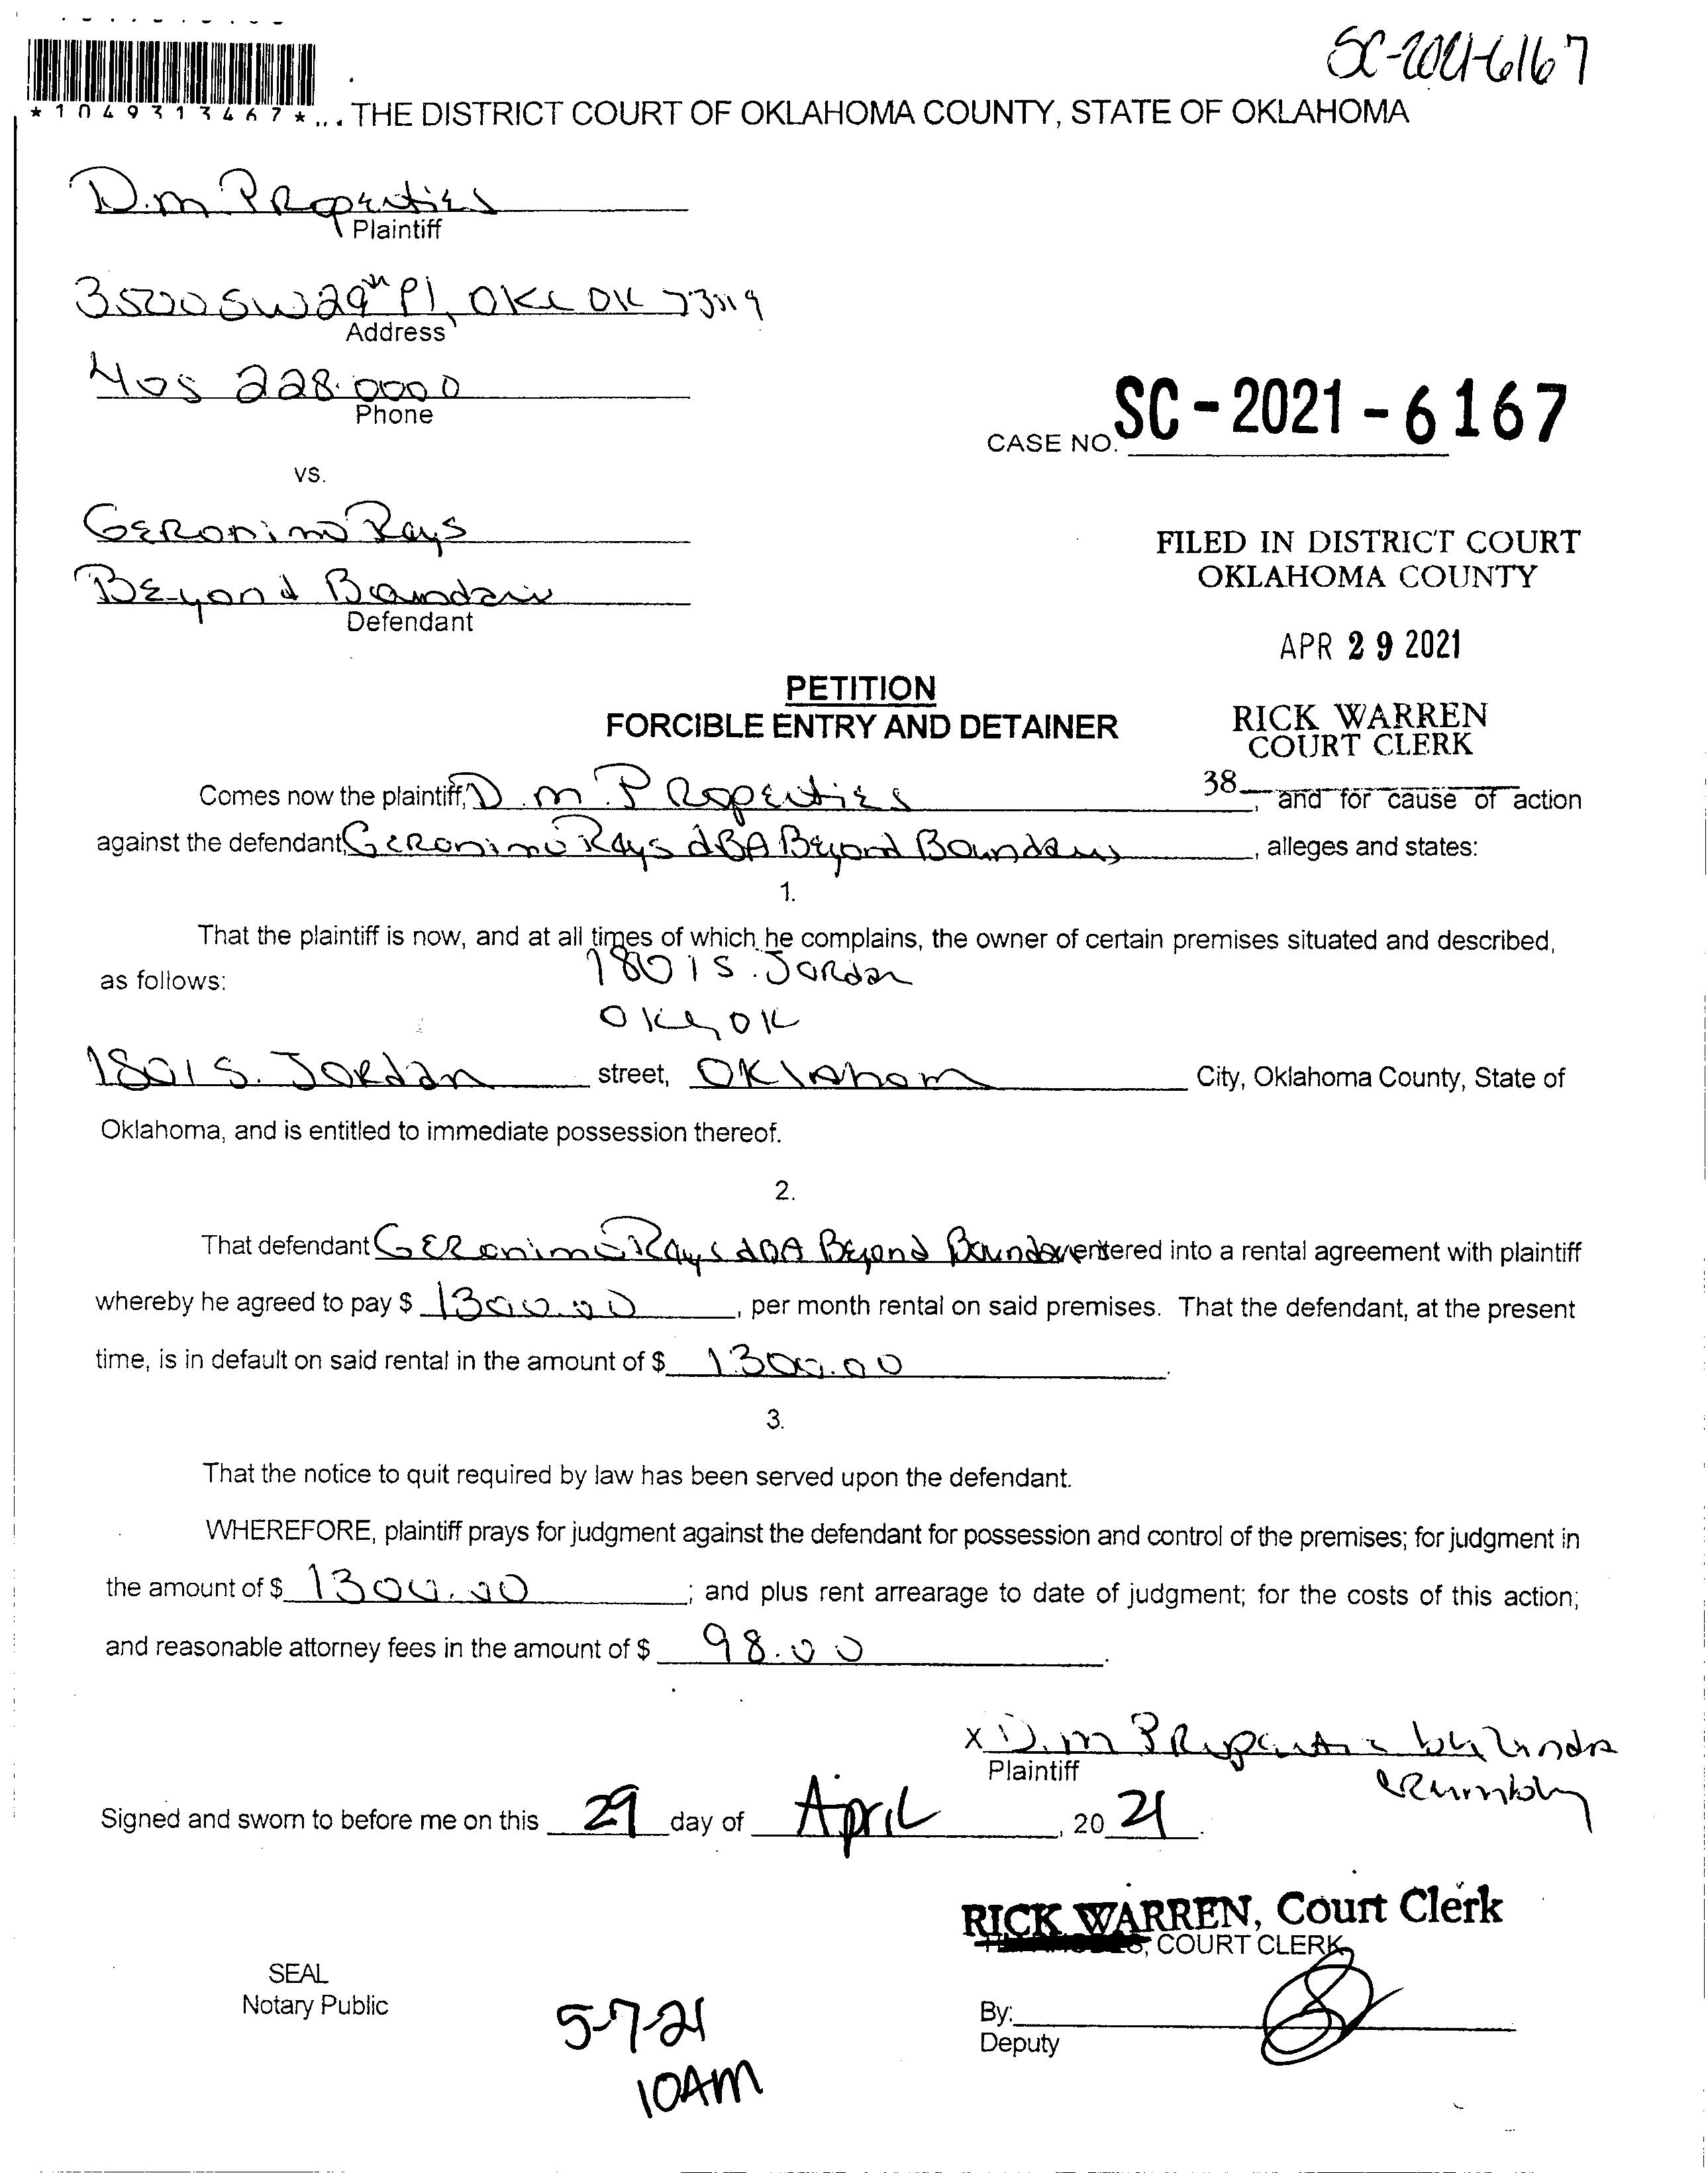 SC-2021-6167
*1049313467*
THE DISTRICT COURT OF OKLAHOMA COUNTY, STATE OF OKLAHOMA
D.M PROPERTIES
Plaintiff
3500 SW 29th Pl, OKC OK 73119
Address
405 228.0000
Phone
CASE NO. SC-2021-6167
vs.
GERONIMO Rays
BEyond
Defendant
FILED IN DISTRICT COURT
OKLAHOMA COUNTY
APR 29 2021
RICK WARREN
COURT CLERK
38
PETITION
FORCIBLE ENTRY AND DETAINER
Comes now the plaintiff, D.M. PROPERTIES, and for cause of action
against the defendant, GERONIMO Rays dBA Beyond, alleges and states:
1.
That the plaintiff is now, and at all times of which he complains, the owner of certain premises situated and described,
as follows: 1801 S. JORdan
OKC, OK
1801 S. JORdan street, OKlahom City, Oklahoma County, State of
Oklahoma, and is entitled to immediate possession thereof.
2.
That defendant GERonimo Rays dBA Beyond entered into a rental agreement with plaintiff
whereby he agreed to pay $ 1300.00, per month rental on said premises. That the defendant, at the present
time, is in default on said rental in the amount of $ 1300.00.
3.
That the notice to quit required by law has been served upon the defendant.
WHEREFORE, plaintiff prays for judgment against the defendant for possession and control of the premises; for judgment in
the amount of $ 1300.00; and plus rent arrearage to date of judgment; for the costs of this action;
and reasonable attorney fees in the amount of $ 98.00.
X D.M PROPERTIES by Linda
Plaintiff
Signed and sworn to before me on this 29 day of April, 2021.
RICK WARREN, Court Clerk
COURT CLERK
SEAL
Notary Public
By:
Deputy
5-7-21
10AM